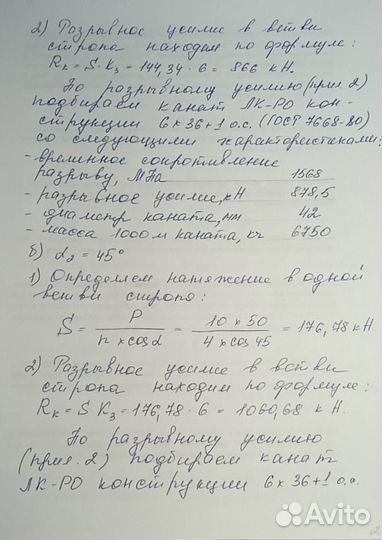 2) Разрывное усилие в ветви
стропа находим по формуле:
Rк = S · Kз = 144,34 · 6 = 866 кН.
По разрывному усилию (прил. 2)
подбираем канат ЛК-РО кон-
струкции 6×36+1 о.с. (ГОСТ 7668-80)
со следующими характеристиками:
- временное сопротивление
разрыву, МПа 1568
- разрывное усилие, кН 878,5
- диаметр каната, мм 42
- масса 1000 м каната, кг 6750
б) α₂ = 45°
1) Определяем натяжение в одной
ветви стропа:
S = P / n × cos α = 10 × 50 / 4 × cos 45 = 176,78 кН
2) Разрывное усилие в ветви
стропа находим по формуле:
Rк = S Kз = 176,78 · 6 = 1060,68 кН.
По разрывному усилию
(прил. 2) подбираем канат
ЛК-РО конструкции 6×36+1 о.с.
Avito